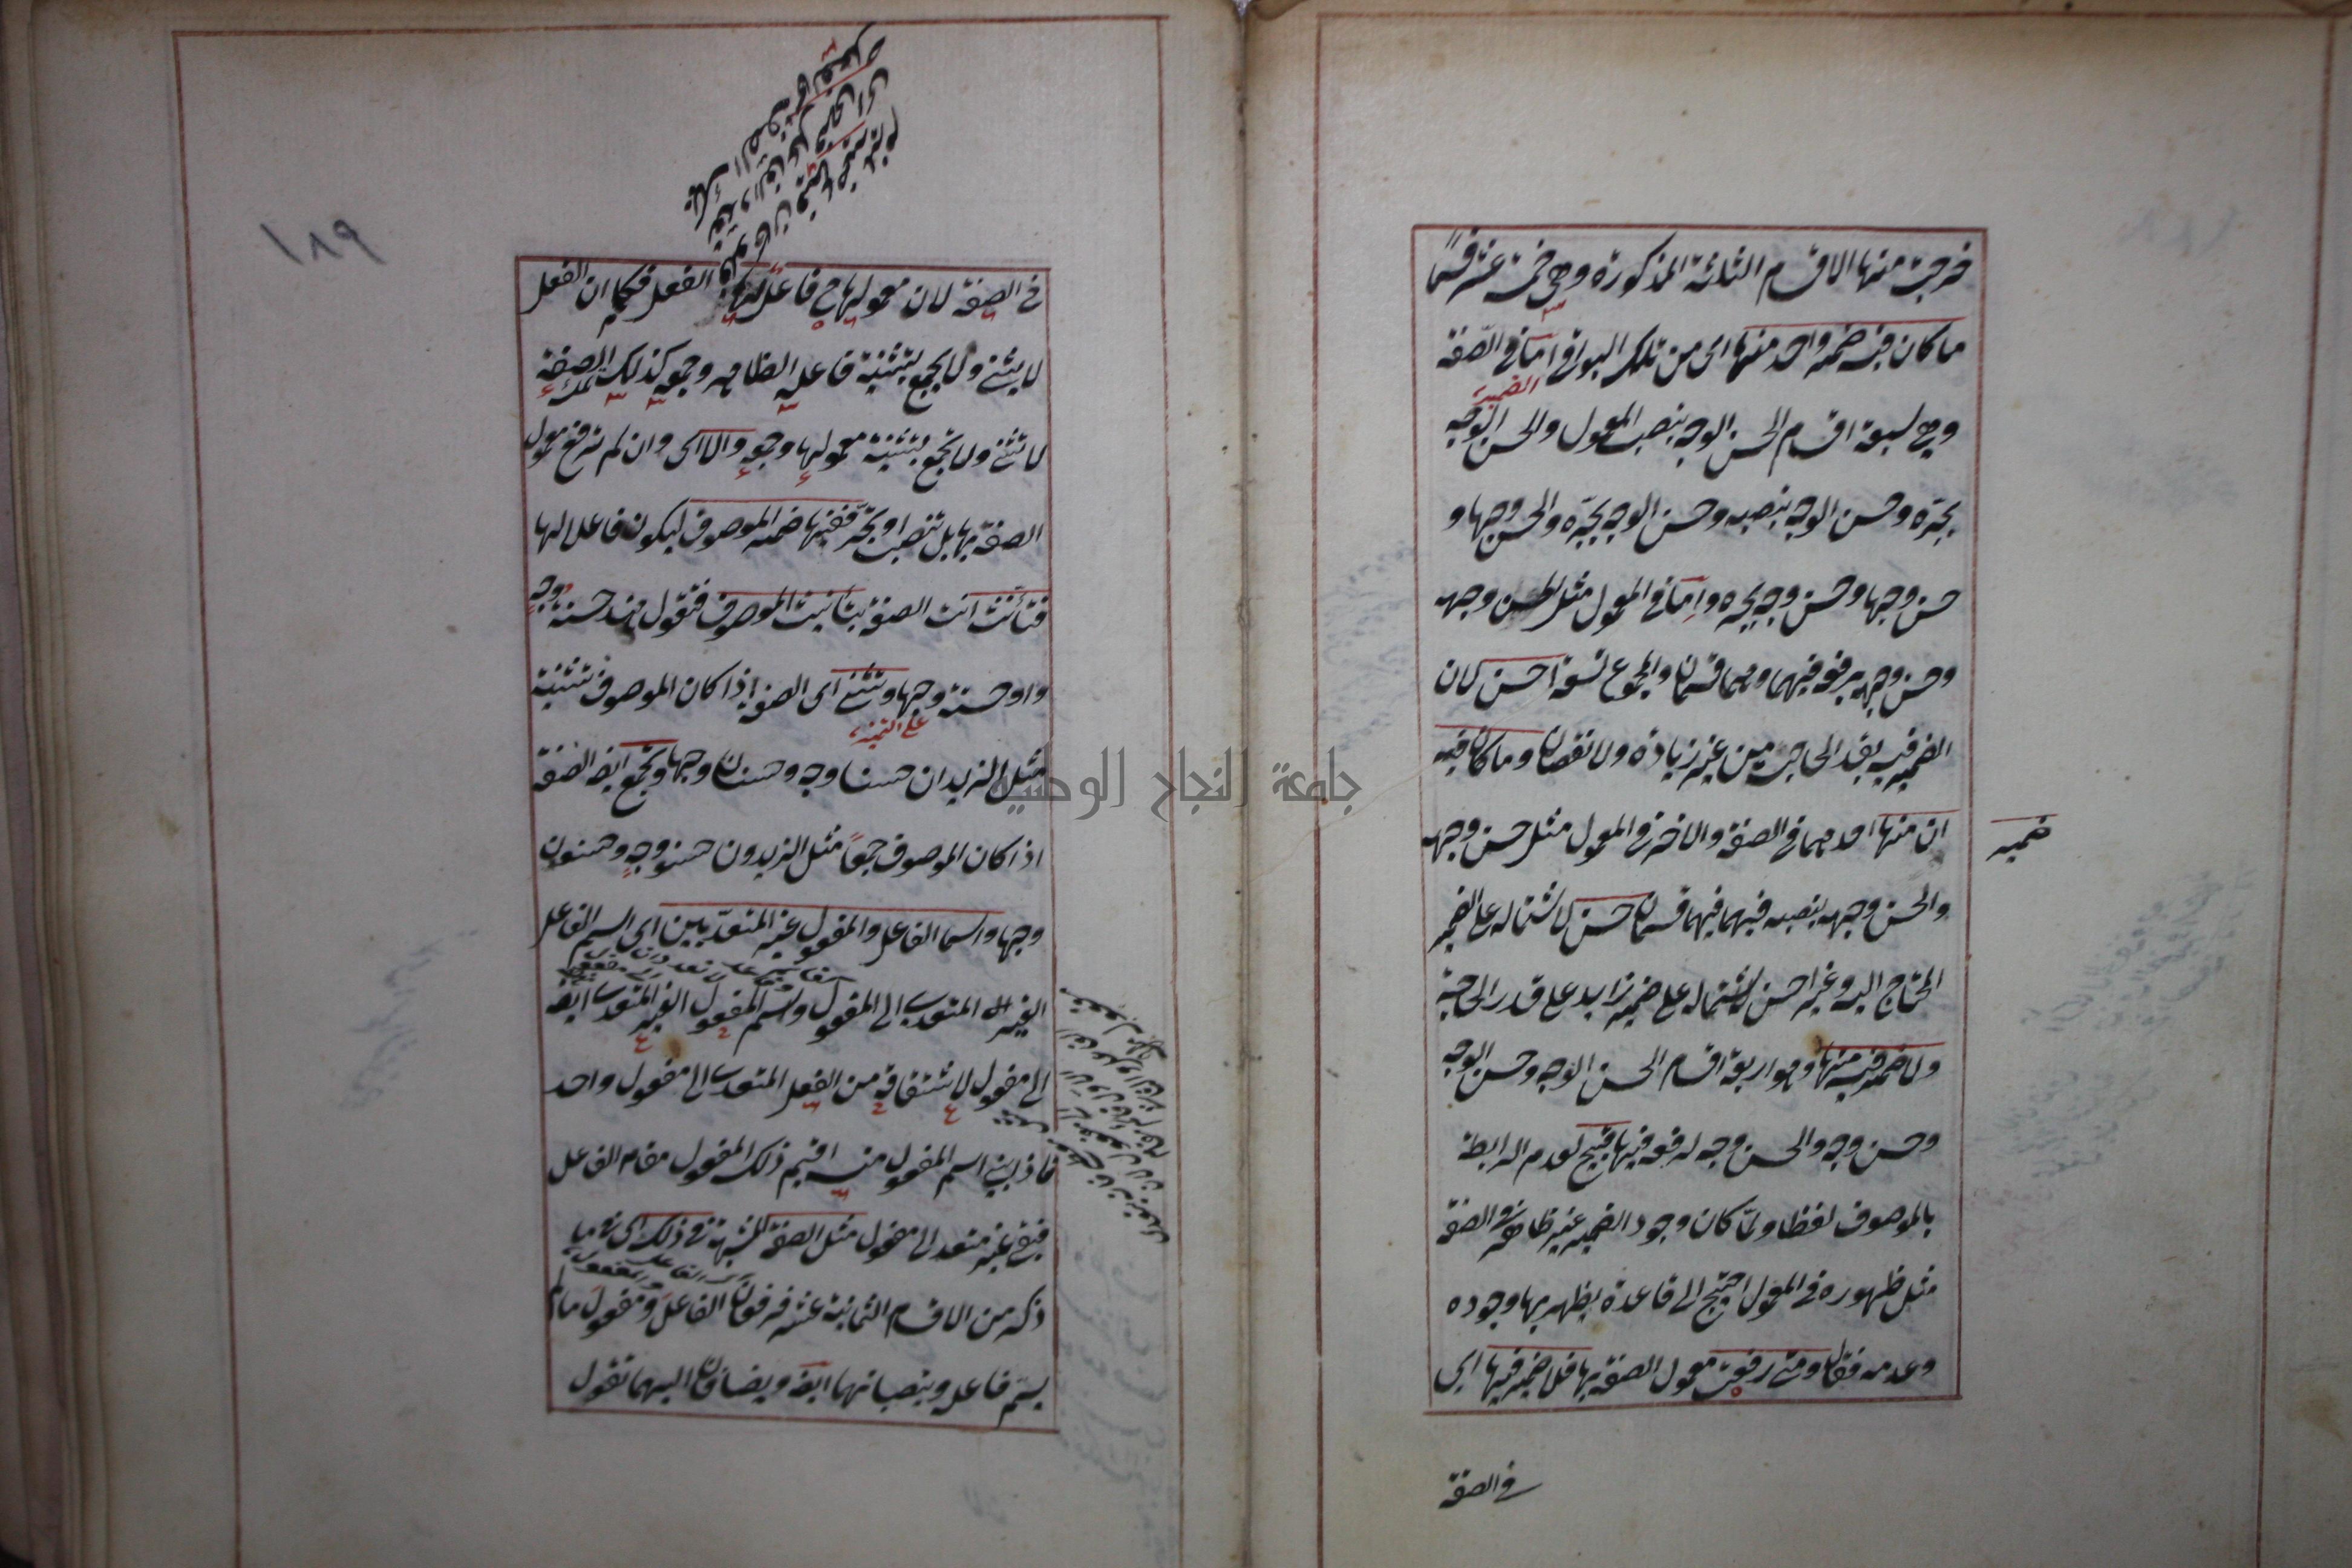 خرجت منها الاقسام الثلثة المذكورة وهي خمسة عشر قسما
ما كان فيه ضمير واحد منها اى من تلك البواقى اما فى الصفة
الضمير
وهى سبعة اقسام الحسن الوجه بنصب المعمول والحسن الوجه
بجره وحسن الوجه بنصبه وحسن الوجه بجره والحسن وجها و
حسن وجها وحسن وجه بجره واما فى المعمول مثل الحسن وجهه
وحسن وجهه برفعه فيهما وهما قسمان والمجموع تسعة احسن لان
الضمير فيه بقدر الحاجة من غير زيادة ولا نقصان وما كان فيه
ضمير
ان منها احدهما فى الصفة والاخر فى المعمول مثل حسن وجهه
والحسن وجهه بنصبه فيهما فيهما قسمان حسن لاشتماله على الضمير
المحتاج اليه وغير احسن لاشتماله على ضمير زايد على قدر الحاجة
ولا ضمير فيه منها وهو اربعة اقسام الحسن الوجه وحسن الوجه
وحسن وجه والحسن وجه لرفعه فيها قبيح لعدم الرابطة
بالموصوف لفظا ولما كان وجود الضمير غير ظاهر فى الصفة
مثل ظهوره فى المعمول احتيج الى قاعدة يظهر بها وجوده
وعدمه فقال ومتى رفعت معمول الصفة بها فلا ضمير فيها اى
فى الصفة
١٨٩
فى الصفة لان معمولها ح فاعل لها الفعل فكما ان الفعل
لا يثنى ولا يجمع بتثنية فاعله الظاهر وجمعه كذلك تلك الصفة
لا تثنى ولا تجمع بتثنية معمولها وجمعه والا اى وان لم ترفع معمول
الصفة بها بل تنصب او تجر ففيها ضمير الموصوف ليكون فاعلا لها
فتأنث انت الصفة بتأنيث الموصوف فتقول هند حسنة وجه
او حسنة وجها وتثنى اى الصفة اذا كان الموصوف تثنية
على التمييز
مثل الزيدان حسنا وجه وحسنان وجها وتجمع ايضا الصفة
اذا كان الموصوف جمعا مثل الزيدون حسنو وجه وحسنون
وجها واسما الفاعل والمفعول غير المتعديين اى اسم الفاعل
الغير المتعدى الى المفعول واسم المفعول الغير المتعدى ايضا
الى مفعول لاشتقاقه من الفعل المتعدى الى مفعول واحد
فاذا بنى اسم المفعول منه اقيم ذلك المفعول مقام الفاعل
فبقى غير متعد الى مفعول مثل الصفة المشبهة فى ذلك اى فيما
ذكر من الاقسام الثمانية عشر فيرفعان الفاعل ومفعول ما لم
يسم فاعله وينصبانهما ايضا ويضافان اليهما تقول
جامعة النجاح الوطنية